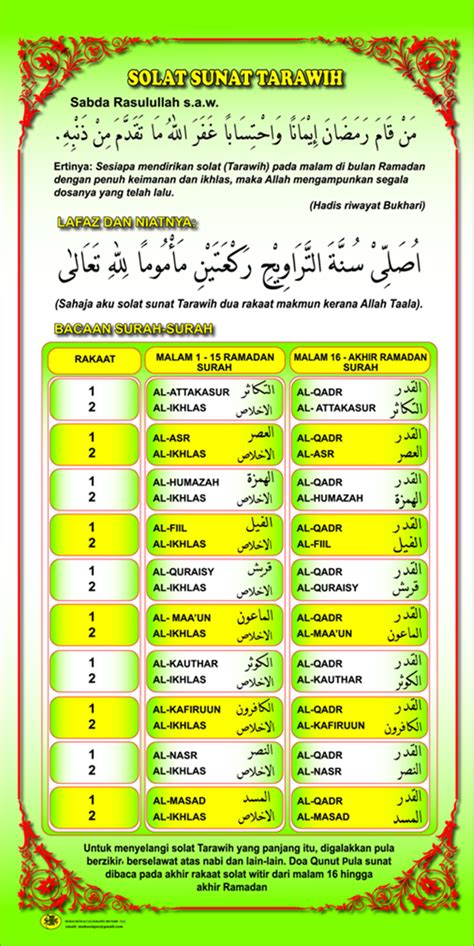 SOLAT SUNAT TARAWIH
Sabda Rasulullah s.a.w.
مَنْ قَامَ رَمَضَانَ إِيْمَانًا وَاحْتِسَابًا غَفَرَ اللهُ مَا تَقَدَّمَ مِنْ ذَنْبِهِ.
Ertinya: Sesiapa mendirikan solat (Tarawih) pada malam di bulan Ramadan
dengan penuh keimanan dan ikhlas, maka Allah mengampunkan segala
dosanya yang telah lalu.
(Hadis riwayat Bukhari)
LAFAZ DAN NIATNYA:
اُصَلِّىْ سُنَّةَ التَّرَاوِيْحِ رَكْعَتَيْنِ مَأْمُومًا لِلّٰهِ تَعَالٰى
(Sahaja aku solat sunat Tarawih dua rakaat makmun kerana Allah Taala).
BACAAN SURAH-SURAH
RAKAAT MALAM 1 - 15 RAMADAN SURAH MALAM 16 - AKHIR RAMADAN SURAH
1 AL-ATTAKASUR التكاثر AL-QADR القدر
2 AL-IKHLAS الاخلاص AL- ATTAKASUR التكاثر
1 AL-ASR العصر AL-QADR القدر
2 AL-IKHLAS الاخلاص AL-ASR العصر
1 AL-HUMAZAH الهمزة AL-QADR القدر
2 AL-IKHLAS الاخلاص AL-HUMAZAH الهمزة
1 AL-FIIL الفيل AL-QADR القدر
2 AL-IKHLAS الاخلاص AL-FIIL الفيل
1 AL-QURAISY قريش AL-QADR القدر
2 AL-IKHLAS الاخلاص AL-QURAISY قريش
1 AL- MAA'UN الماعون AL-QADR القدر
2 AL-IKHLAS الاخلاص AL-MAA'UN الماعون
1 AL-KAUTHAR الكوثر AL-QADR القدر
2 AL-IKHLAS الاخلاص AL-KAUTHAR الكوثر
1 AL-KAFIRUUN الكافرون AL-QADR القدر
2 AL-IKHLAS الاخلاص AL-KAFIRUUN الكافرون
1 AL-NASR النصر AL-QADR القدر
2 AL-IKHLAS الاخلاص AL-NASR النصر
1 AL-MASAD المسد AL-QADR القدر
2 AL-IKHLAS الاخلاص AL-MASAD المسد
Untuk menyelangi solat Tarawih yang panjang itu, digalakkan pula
berzikir, berselawat atas nabi dan lain-lain. Doa Qunut Pula sunat
dibaca pada akhir rakaat solat witir dari malam 16 hingga
akhir Ramadan